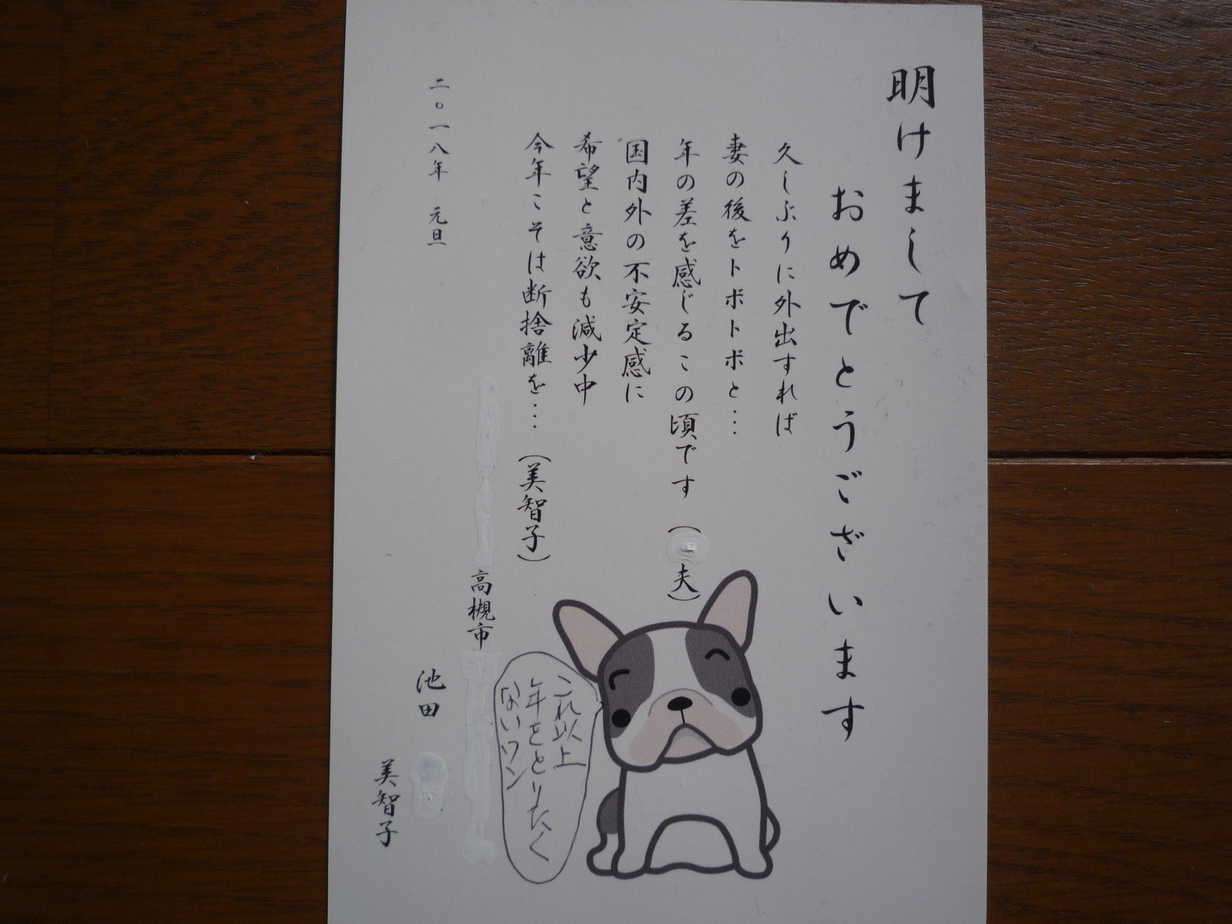 明けまして
おめでとうございます
久しぶりに外出すれば
妻の後をトボトボと…
年の差を感じるこの頃です（夫）
国内外の不安定感に
希望と意欲も減少中
今年こそは断捨離を…（美智子）
二〇一八年 元旦
高槻市
池田
美智子
これ以上
年をとりたく
ないワン